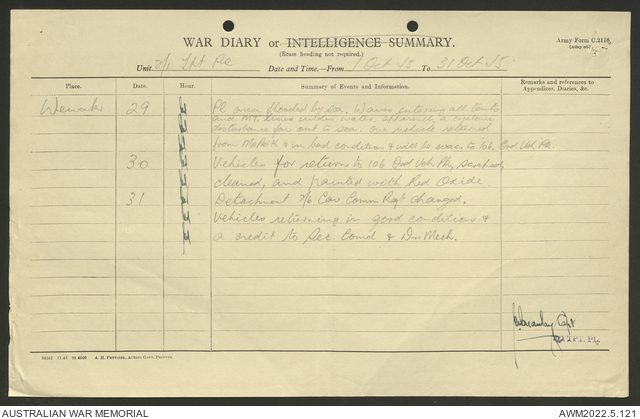 WAR DIARY or INTELLIGENCE SUMMARY.
(Erase heading not required.)
Army Form C.2118
Unit Date and Time.—From 1 Oct 45 To 31 Oct 45
Place. Date. Hour. Summary of Events and Information. Remarks and references to Appendices, Diaries, &c.
Wewak 29 Pl area flooded by sea. Waves entering all tents
and MT lines under water, apparently a cyclonic
disturbance far out to sea. One vehicle returned
from in bad condition & will be evac to 106 Ord Veh Pk.
30 Vehicles for return to 106 Ord Veh Pk,
cleaned, and painted with Red Oxide.
31 Detachment 2/6 Cav Comm Regt changed.
Vehicles returning in good condition &
a credit to Sec. Comd & Dvr Mech.
Capt
A. H. Pettifer, Acting Govt. Printer
AUSTRALIAN WAR MEMORIAL
AWM2022.5.121